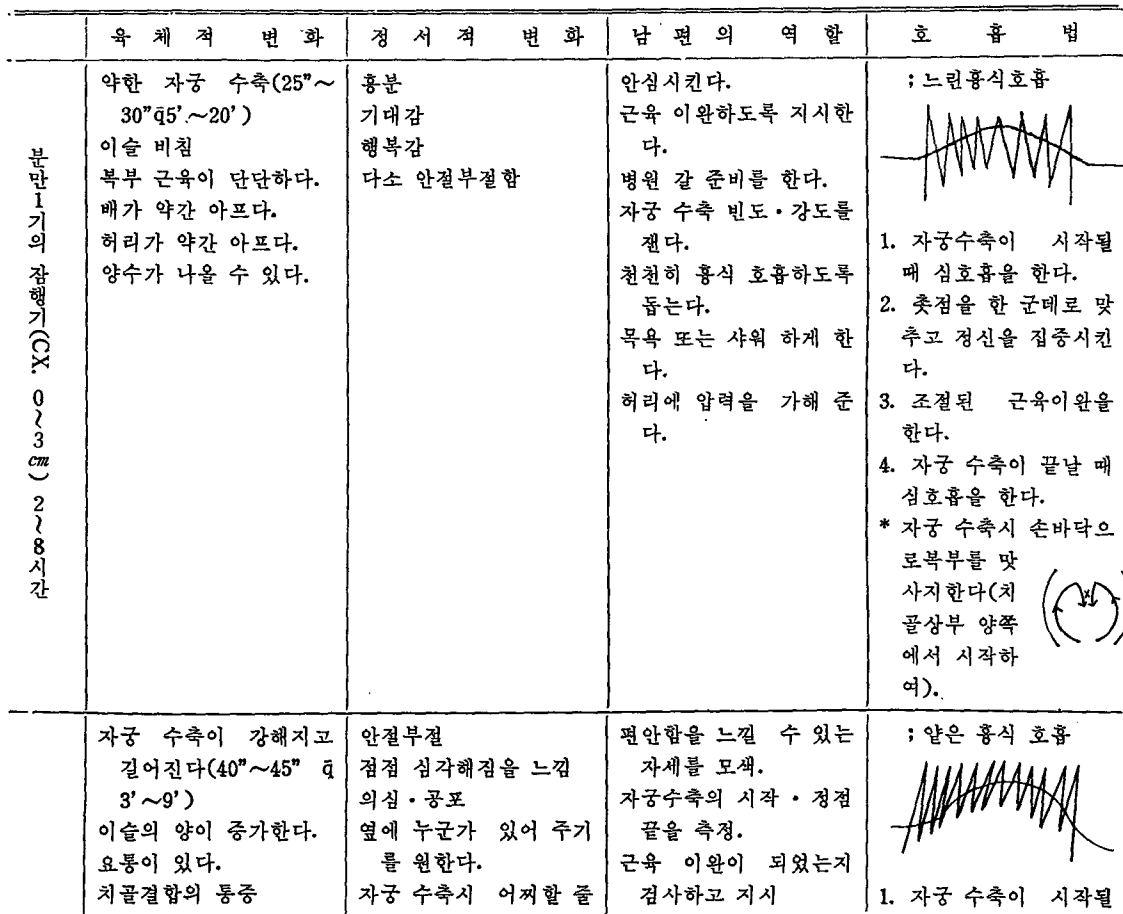 육체적 변화
정서적 변화
남편의 역할
호흡법
분만1기의 잠행기(CX. 0~3cm) 2~8시간
약한 자궁 수축(25"~
30"q̄5'~20')
이슬 비침
복부 근육이 단단하다.
배가 약간 아프다.
허리가 약간 아프다.
양수가 나올 수 있다.
흥분
기대감
행복감
다소 안절부절함
안심시킨다.
근육 이완하도록 지시한
다.
병원 갈 준비를 한다.
자궁 수축 빈도·강도를
잰다.
천천히 흉식 호흡하도록
돕는다.
목욕 또는 샤워 하게 한
다.
허리에 압력을 가해 준
다.
; 느린흉식호흡
1. 자궁수축이 시작될
때 심호흡을 한다.
2. 촛점을 한 군데로 맞
추고 정신을 집중시킨
다.
3. 조절된 근육이완을
한다.
4. 자궁 수축이 끝날 때
심호흡을 한다.
* 자궁 수축시 손바닥으
로복부를 맛
사지한다(치
골상부 양쪽
에서 시작하
여).
자궁 수축이 강해지고
길어진다(40"~45" q̄
3'~9')
이슬의 양이 증가한다.
요통이 있다.
치골결합의 통증
안절부절
점점 심각해짐을 느낌
의심·공포
옆에 누군가 있어 주기
를 원한다.
자궁 수축시 어찌할 줄
편안함을 느낄 수 있는
자세를 모색.
자궁수축의 시작·정점
끝을 측정.
근육 이완이 되었는지
검사하고 지시
; 얕은 흉식 호흡
1. 자궁 수축이 시작될